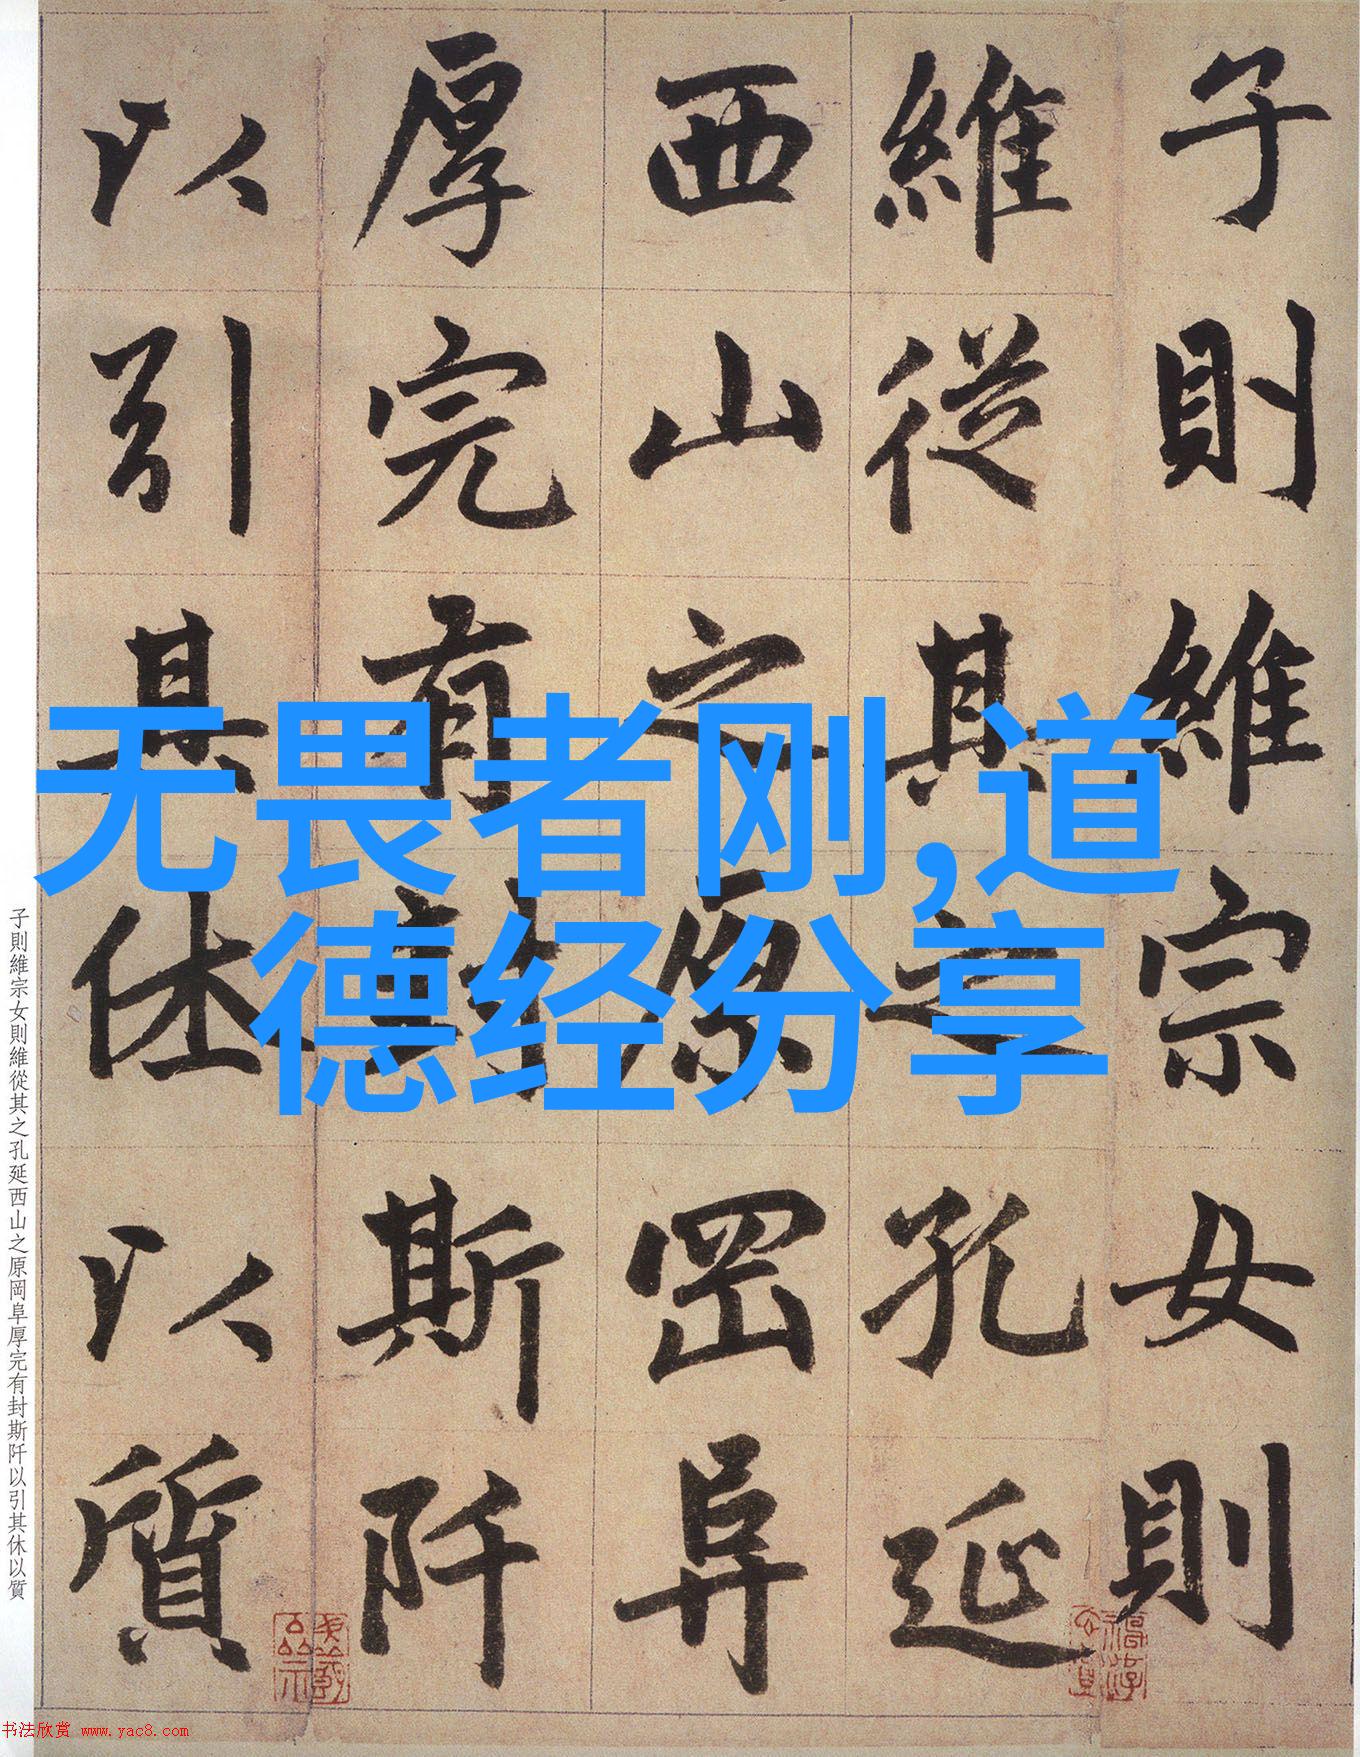 子則維宗女則
維從其之孔延
西山之原罡阜
厚完有封斯阡
以引其休以質
无畏者刚,道
德经分享
子則維宗女則維從其之孔延西山之原岡阜厚完有封斯阡以引其休以質
书法欣赏 www.yac8.com